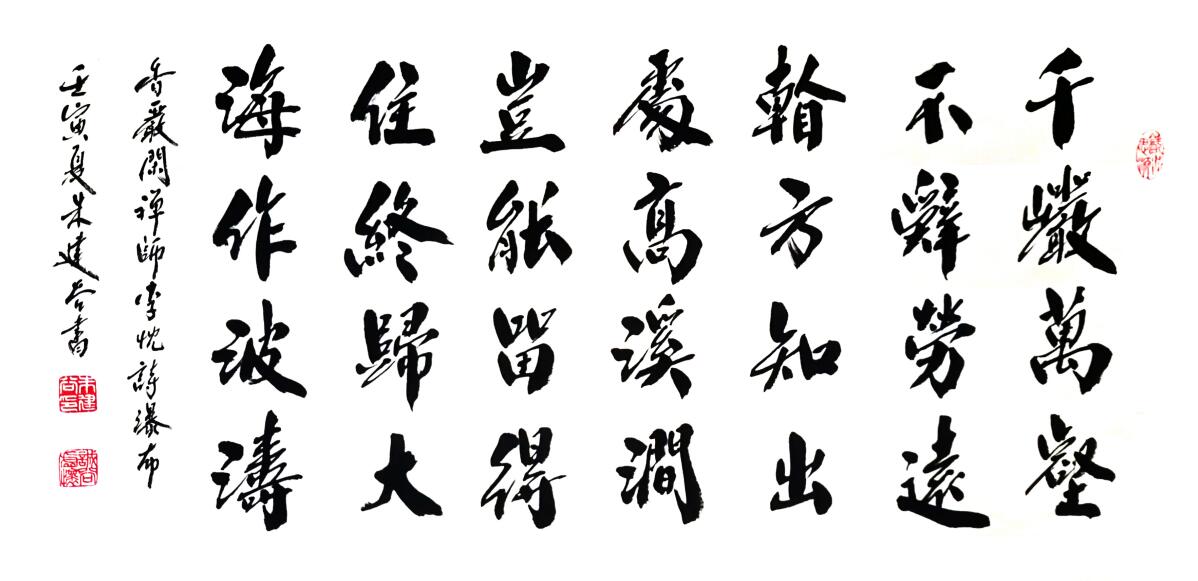 千巖萬壑
不辭勞遠
看方知出
處高溪澗
豈能留得
住終歸大
海作波濤
香嚴閑禪師李忱詩瀑布
壬寅夏朱建谷書